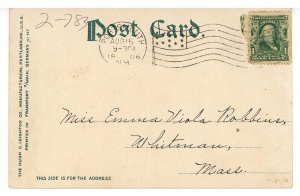 2-783
Post Card.
AUG 16
9-
19 06
N.H.
Miss Emma Viola Robbins,
Whitman,
Mass.
THIS SIDE IS FOR THE ADDRESS
THE HUGH C. LEIGHTON CO., MANUFACTURERS, PORTLAND, ME., U.S.A.
PRINTED IN FRANKFORT MAIN, GERMANY.